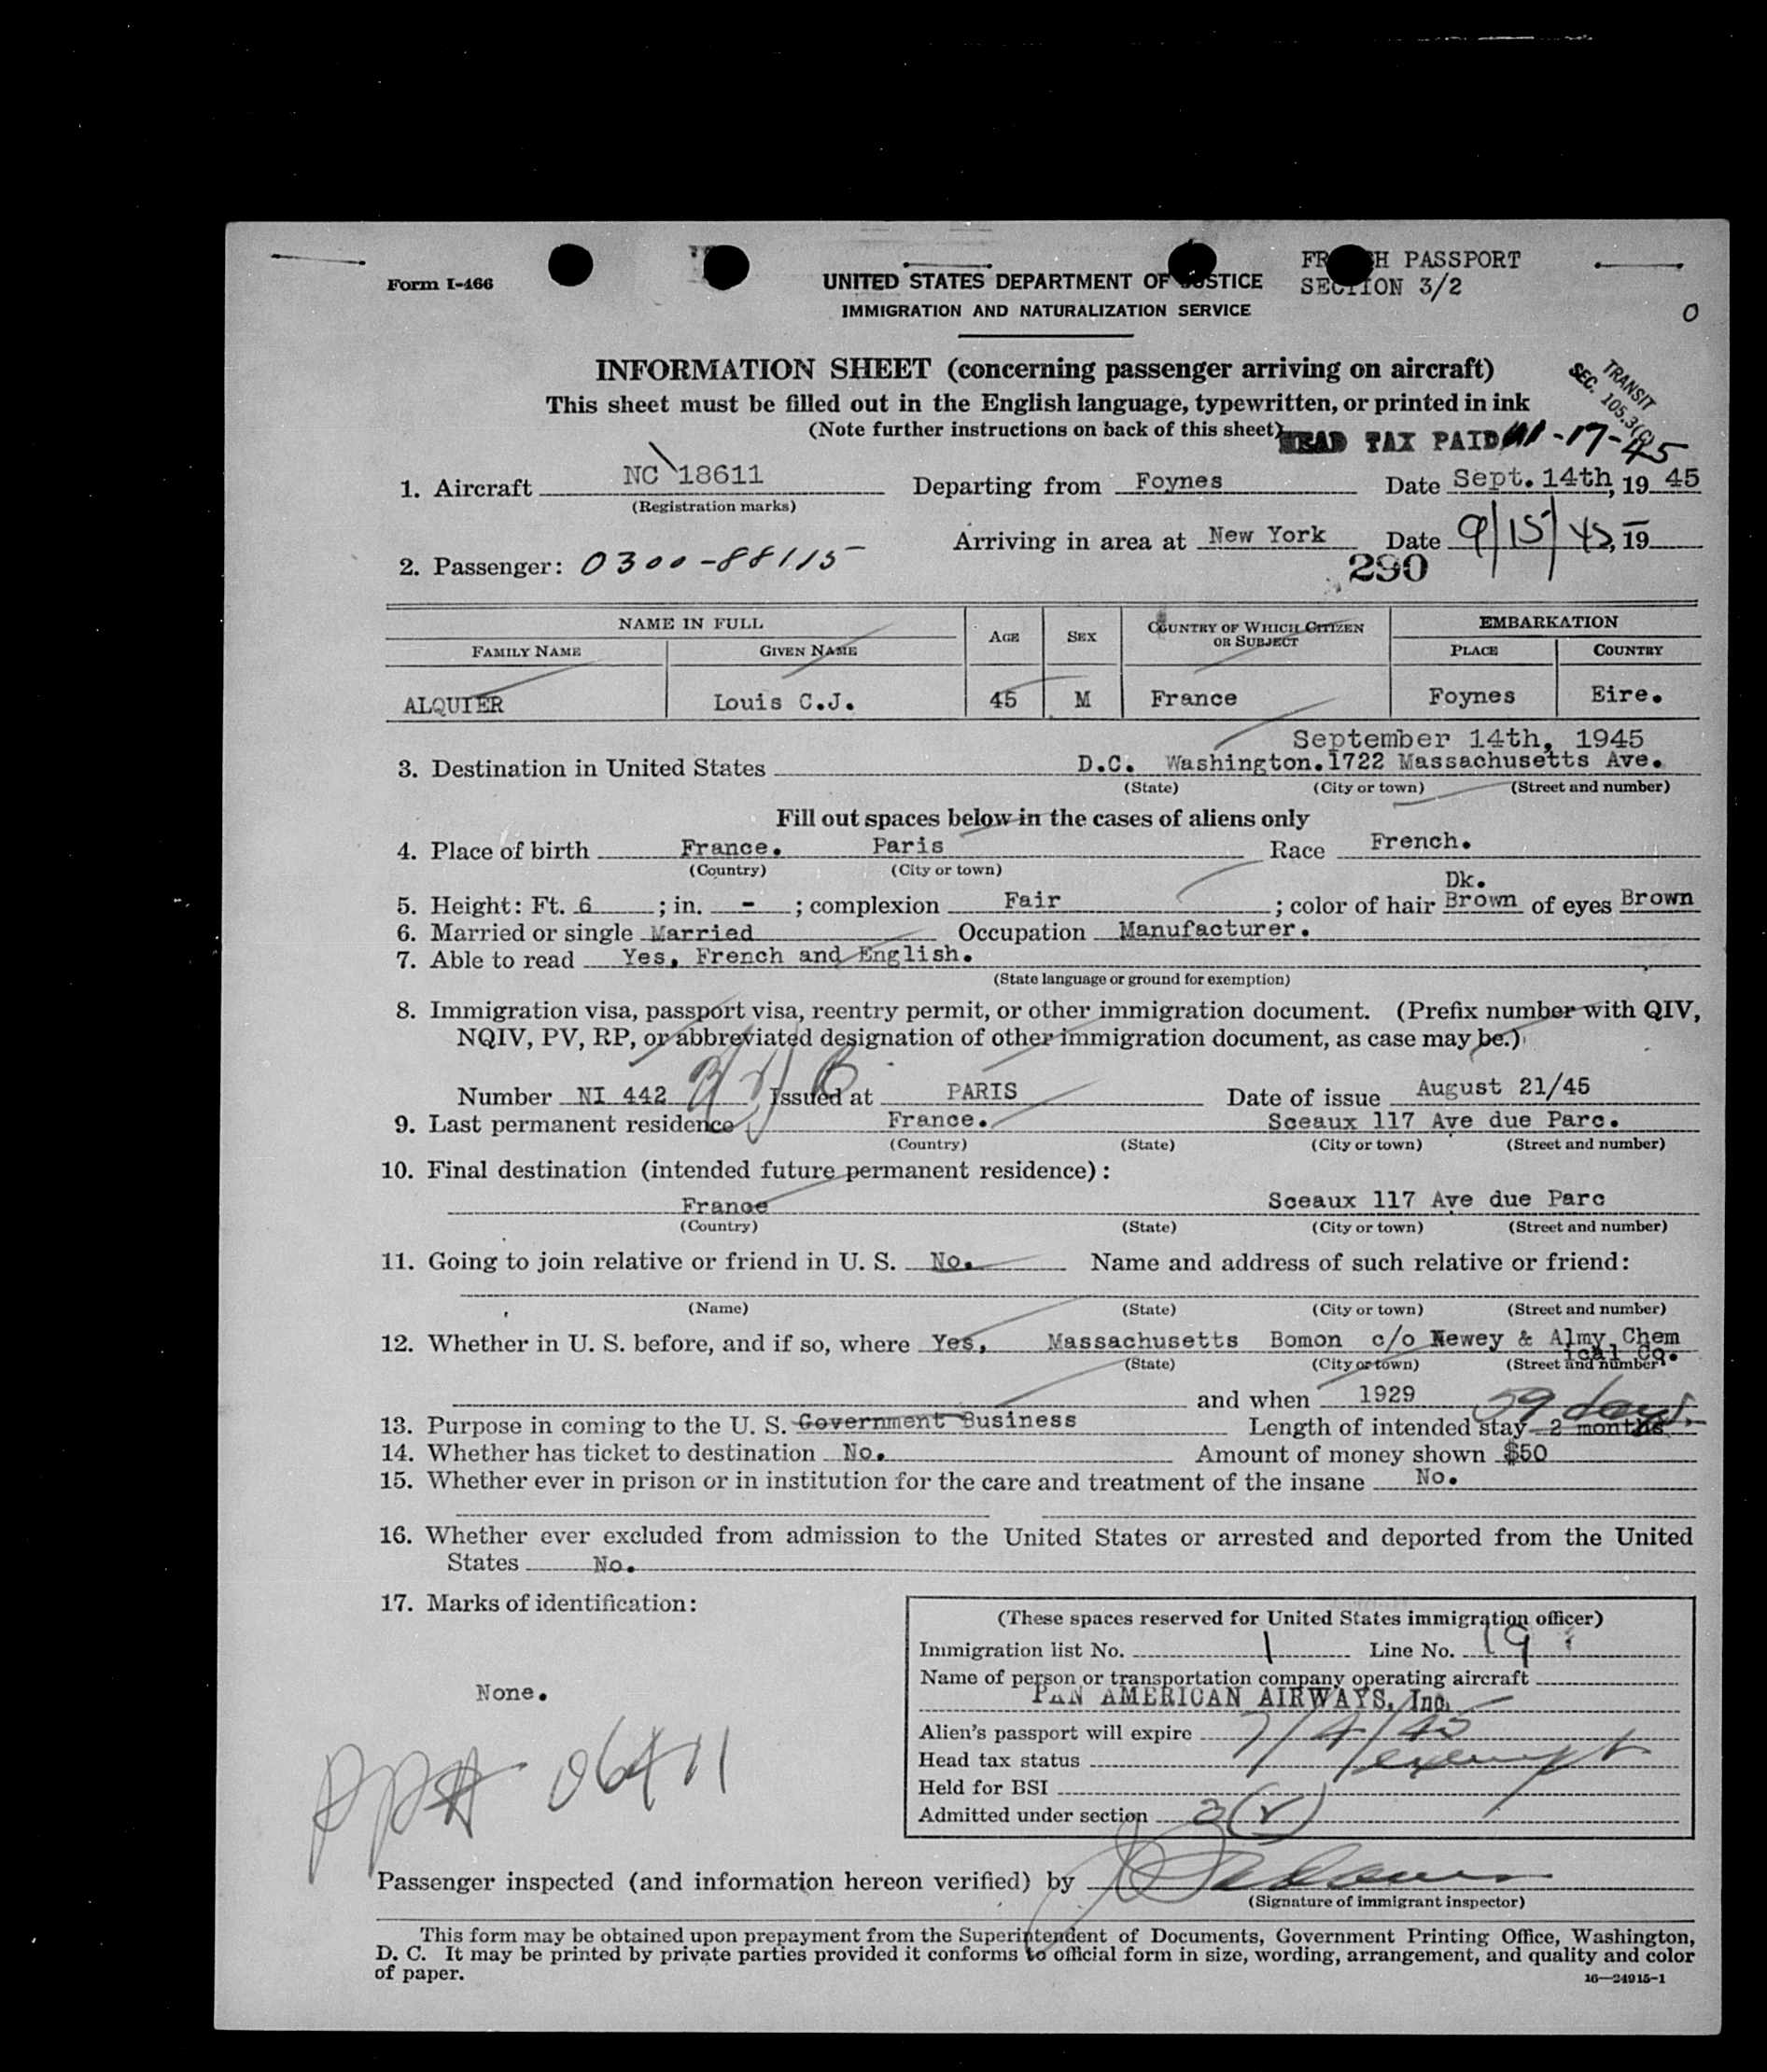 Form I-466
UNITED STATES DEPARTMENT OF JUSTICE
IMMIGRATION AND NATURALIZATION SERVICE
FR H PASSPORT
SECTION 3/2
0
INFORMATION SHEET (concerning passenger arriving on aircraft)
This sheet must be filled out in the English language, typewritten, or printed in ink
(Note further instructions on back of this sheet)
TRANSIT
SEC. 105.3(C)
HEAD TAX PAID -17-45
1. Aircraft NC 18611 Departing from Foynes Date Sept. 14th, 19 45
(Registration marks)
Arriving in area at New York Date 9/15/45, 19
2. Passenger: 0300-88115
290
NAME IN FULL AGE SEX COUNTRY OF WHICH CITIZEN OR SUBJECT EMBARKATION
FAMILY NAME GIVEN NAME PLACE COUNTRY
ALQUIER Louis C.J. 45 M France Foynes Eire.
September 14th, 1945
3. Destination in United States D.C. Washington.1722 Massachusetts Ave.
(State) (City or town) (Street and number)
Fill out spaces below in the cases of aliens only
4. Place of birth France. Paris Race French.
(Country) (City or town)
Dk.
5. Height: Ft. 6 ; in. - ; complexion Fair ; color of hair Brown of eyes Brown
6. Married or single Married Occupation Manufacturer.
7. Able to read Yes, French and English.
(State language or ground for exemption)
8. Immigration visa, passport visa, reentry permit, or other immigration document. (Prefix number with QIV,
NQIV, PV, RP, or abbreviated designation of other immigration document, as case may be.)
Number NI 442 Issued at PARIS Date of issue August 21/45
9. Last permanent residence France. Sceaux 117 Ave due Parc.
(Country) (State) (City or town) (Street and number)
10. Final destination (intended future permanent residence):
France Sceaux 117 Ave due Parc
(Country) (State) (City or town) (Street and number)
11. Going to join relative or friend in U. S. No. Name and address of such relative or friend:
(Name) (State) (City or town) (Street and number)
12. Whether in U. S. before, and if so, where Yes, Massachusetts Bomon c/o Newey & Almy Chem
ical Co.
(State) (City or town) (Street and number)
and when 1929 59 days.
13. Purpose in coming to the U. S. Government Business Length of intended stay 2 months
14. Whether has ticket to destination No. Amount of money shown $50
15. Whether ever in prison or in institution for the care and treatment of the insane No.
16. Whether ever excluded from admission to the United States or arrested and deported from the United
States No.
17. Marks of identification:
None.
(These spaces reserved for United States immigration officer)
Immigration list No. 1 Line No. 19
Name of person or transportation company operating aircraft
PAN AMERICAN AIRWAYS, Inc.
Alien's passport will expire 7/4/45
Head tax status exempt
Held for BSI
Admitted under section 3(2)
PP# 06411
Passenger inspected (and information hereon verified) by
(Signature of immigrant inspector)
This form may be obtained upon prepayment from the Superintendent of Documents, Government Printing Office, Washington,
D. C. It may be printed by private parties provided it conforms to official form in size, wording, arrangement, and quality and color
of paper.
16—24915-1